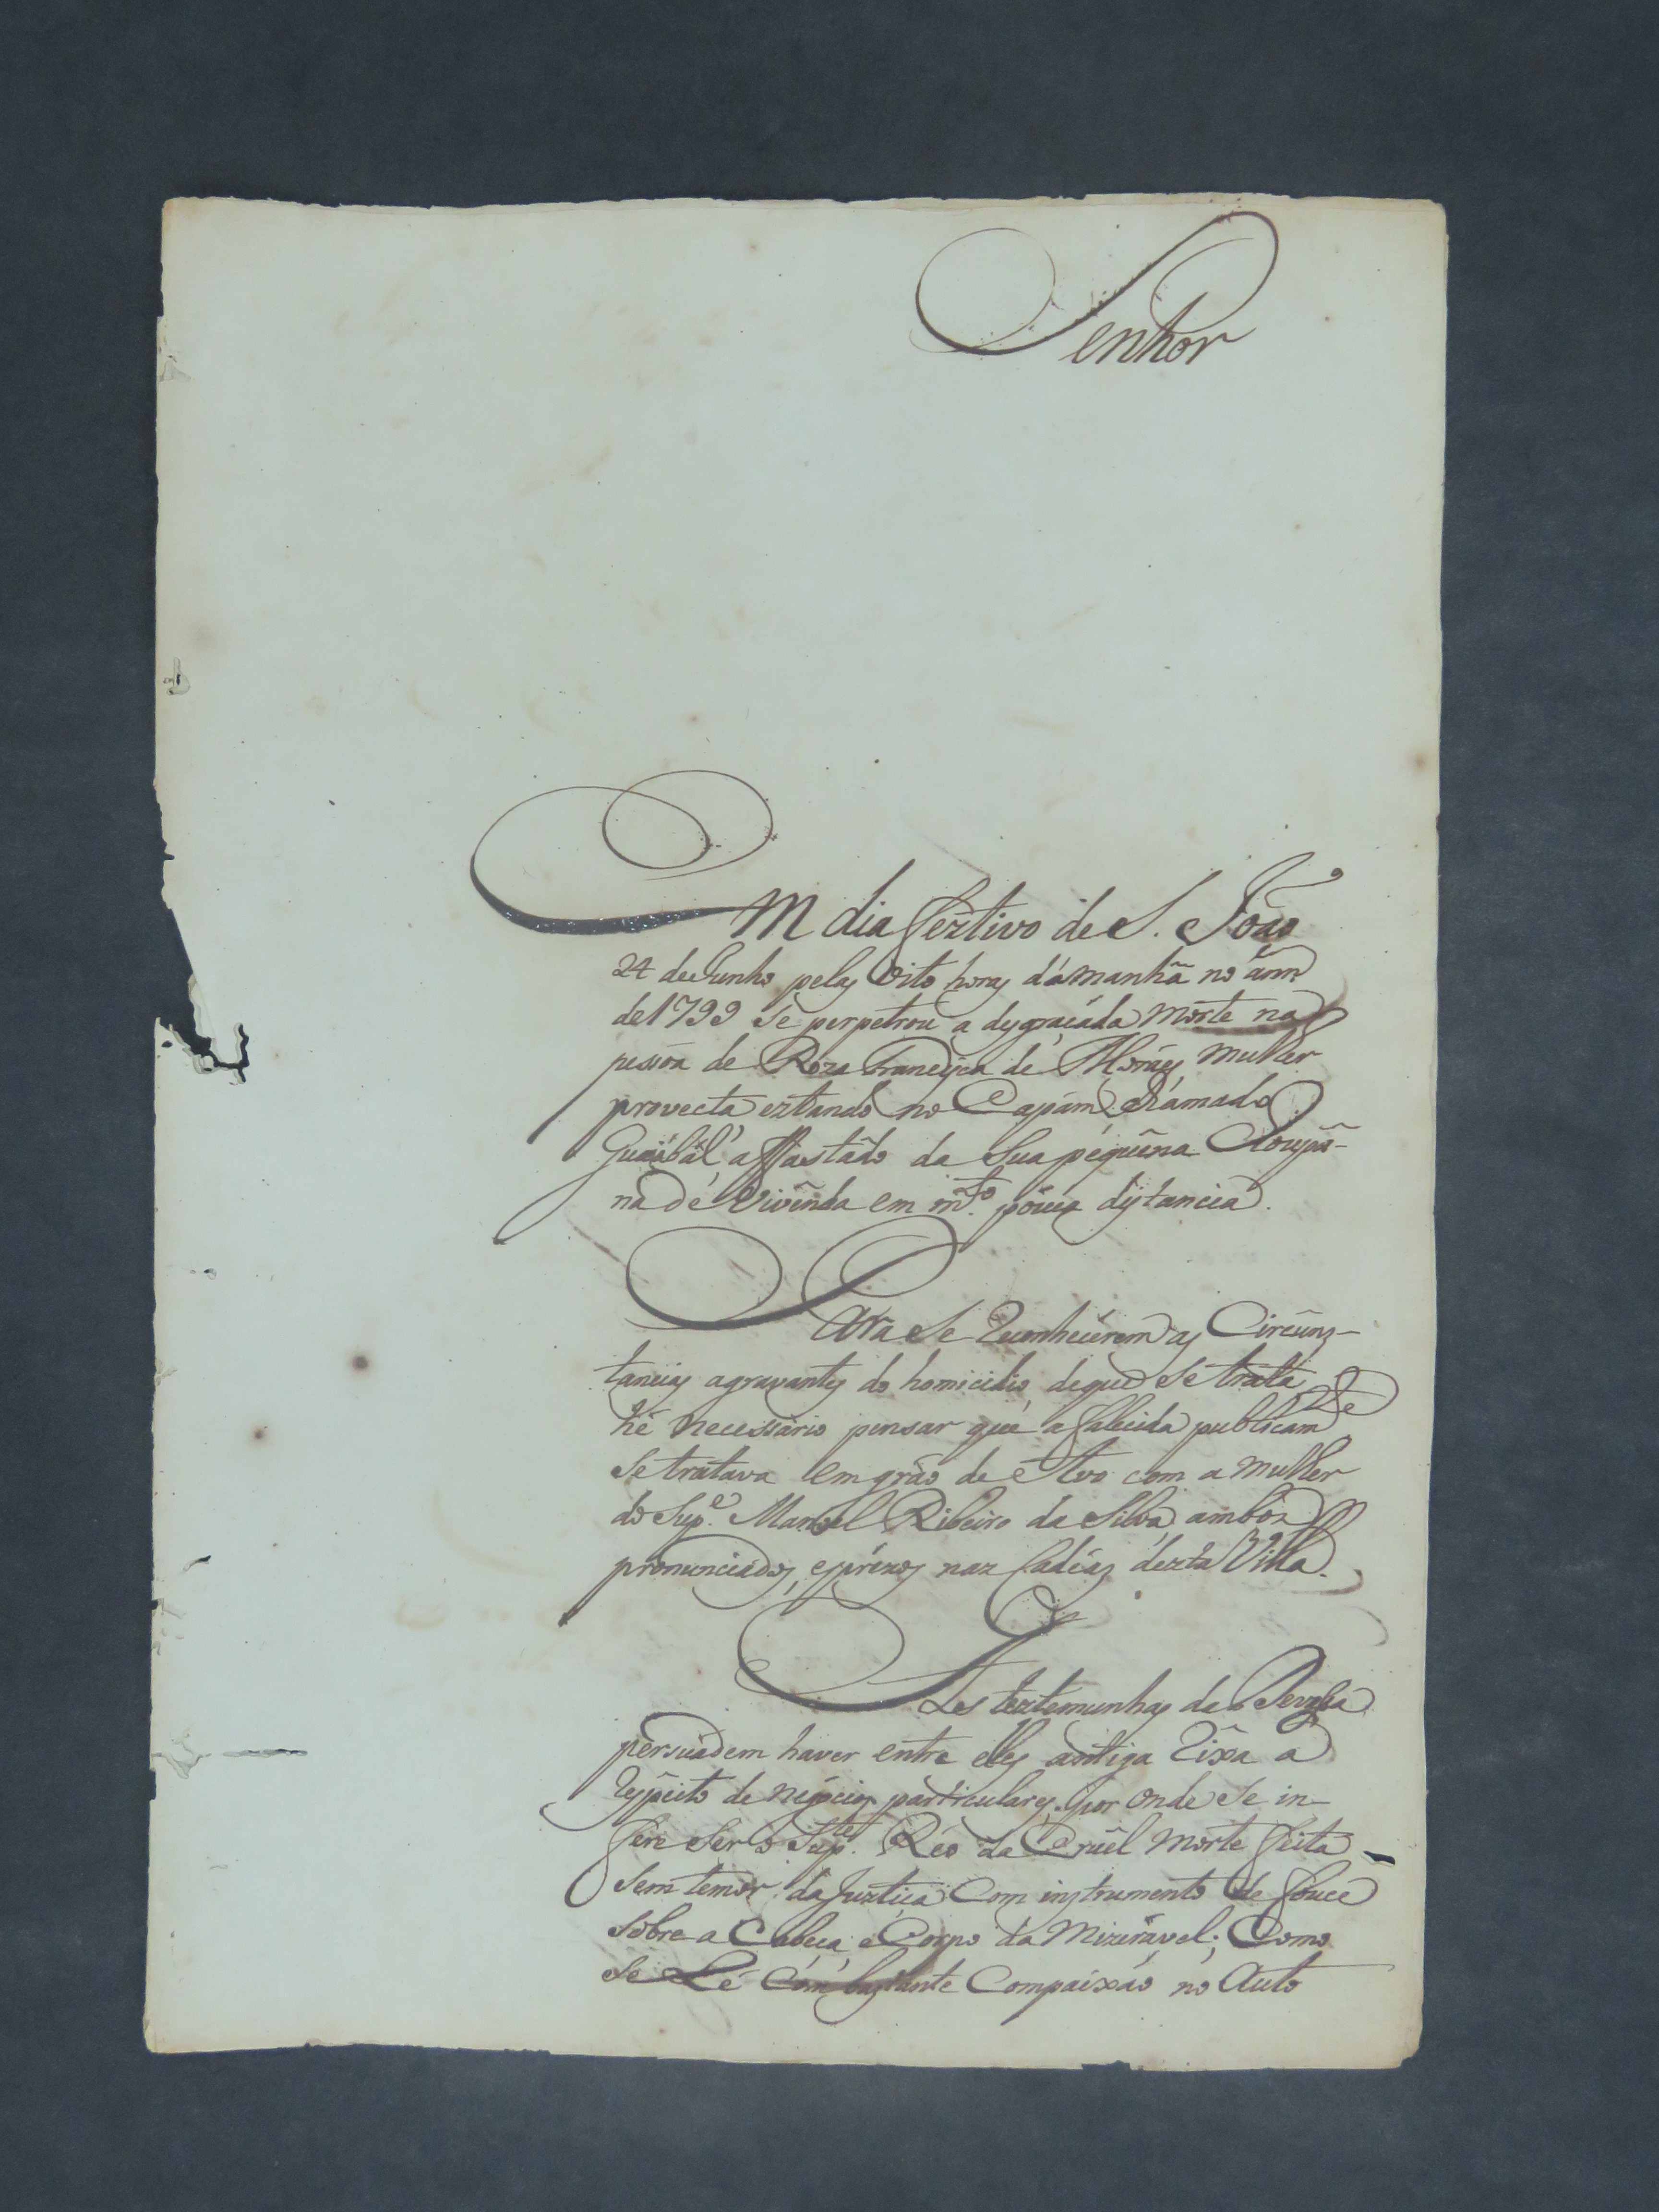 Senhor
Em dia feztivo de S. João
24 de Junho pelas Oito horas dá manhã no ãnno
de 1799 se perpetrou a desgraçáda Morte na
pessoa de Roza Francisca de Moráes Mulher
provecta eztando no Capám chámado
Guaibál, affastádo da Sua péquena Choupã-
na dé Vivênda em m.to pouca distancia.
Para se reconhecérem as Circûnz-
tancias agravantes do homicidio, de que se trata,
hé necessario pensar que a falecida publicam.te
se tratava em gráo de Odio com a Mulher
do Sup.e Manoel Ribeiro da Silva, ambos
pronunciados, e prezos naz Cadéaz dezta Villa.
Les teztemunhas da Devaça
persuadem haver entre elles antiga rixa a
respeito de negocios particulares, por onde se in-
fere ser o Sup.e Réo da Cruêl Morte feita
sem temor da Juztiça Com instrumento de fouce
sobre a Cabeça, e Corpo da Mizerável; Como
se Lê Com bastante Compaixão no Auto